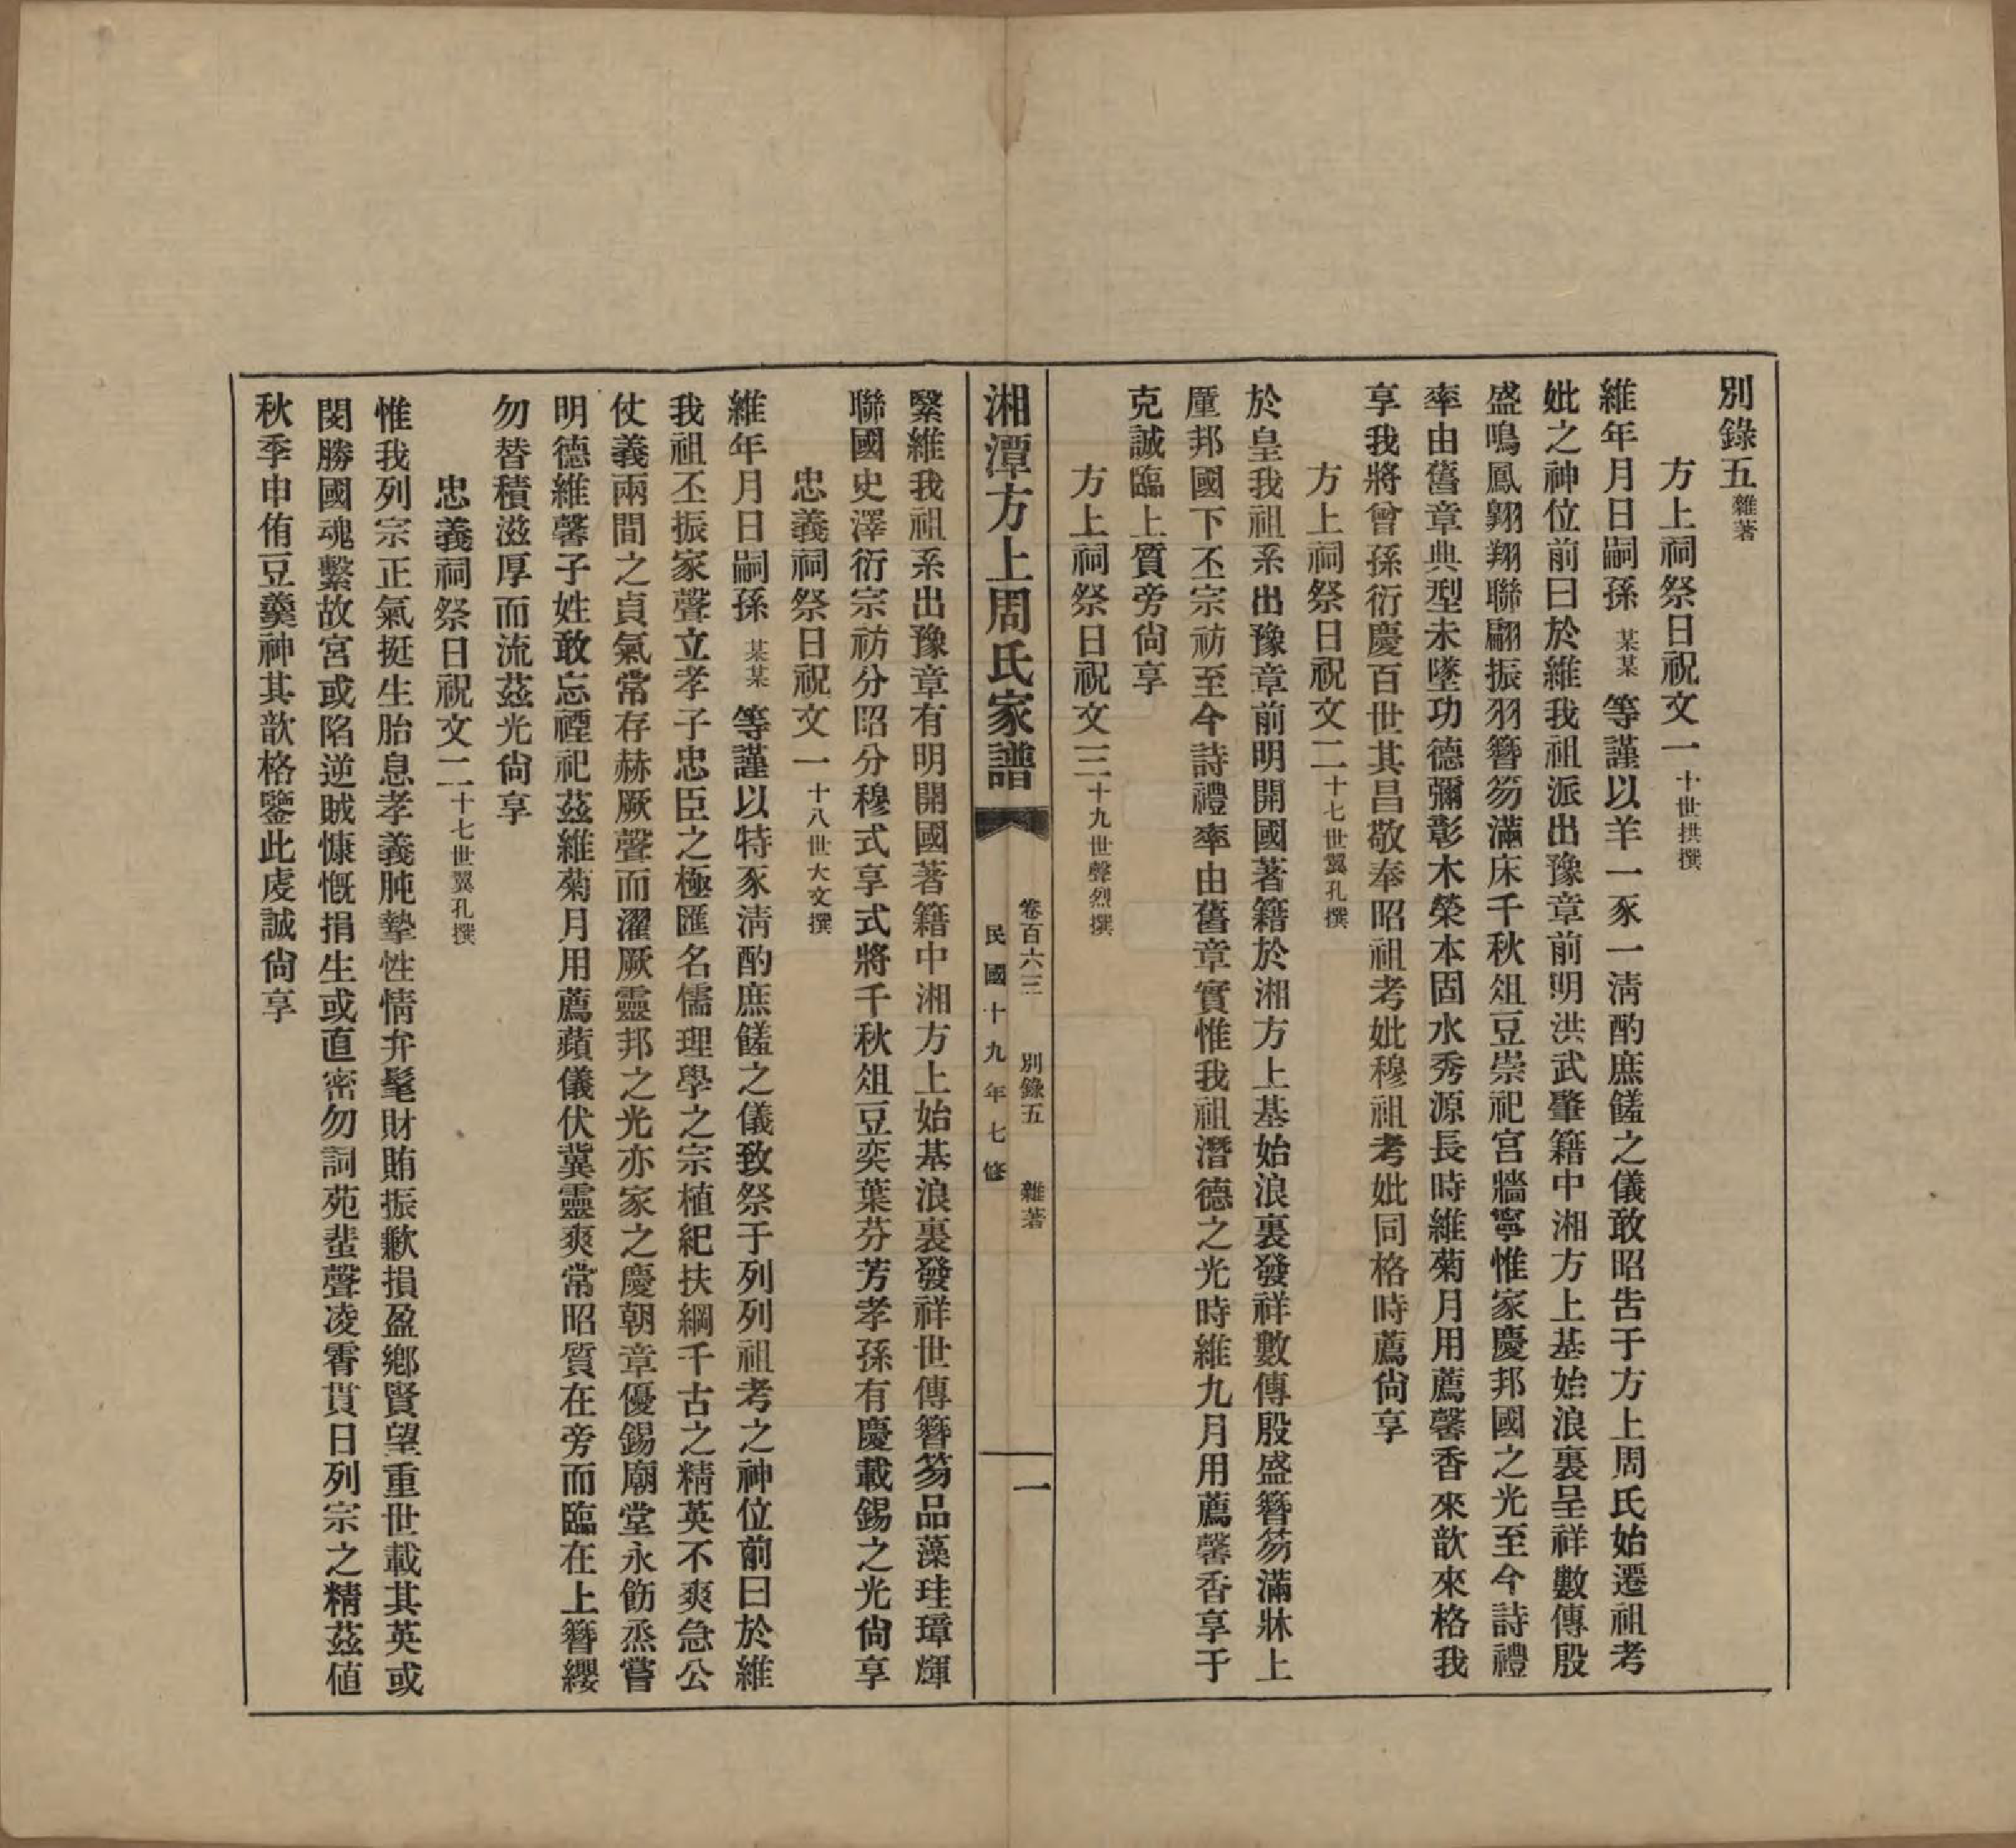 別錄五雜著
方上祠祭日祝文一十世拱撰
維年月日嗣孫某某等謹以羊一豕一清酌庶饈之儀敢昭告于方上周氏始遷祖考
妣之神位前曰於維我祖派出豫章前明洪武肇籍中湘方上基始浪裏呈祥數傳殷
盛鳴鳳翺翔聯翩振羽簪笏滿床千秋俎豆崇祀宮牆寧惟家慶邦國之光至今詩禮
率由舊章典型未墜功德彌彰木榮本固水秀源長時維菊月用薦馨香來歆來格我
享我將曾孫衍慶百世其昌敬奉昭祖考妣穆祖考妣同格時薦尙享
方上祠祭日祝文二十七世翼孔撰
於皇我祖系出豫章前明開國著籍於湘方上基始浪裏發祥數傳殷盛簪笏滿牀上
厪邦國下丕宗祊至今詩禮率由舊章實惟我祖潛德之光時維九月用薦馨香享于
克誠臨上質旁尙享
方上祠祭日祝文三十九世聲烈撰
湘潭方上周氏家譜 卷百六三 別錄五 雜著 一 民國十九年七修
緊維我祖系出豫章有明開國著籍中湘方上始基浪裏發祥世傳簪笏品藻珪璋輝
聯國史澤衍宗祊分昭分穆式享式將千秋俎豆奕葉芬芳孝孫有慶載錫之光尙享
忠義祠祭日祝文一十八世大文撰
維年月日嗣孫某某等謹以特豕清酌庶饈之儀致祭于列列祖考之神位前曰於維
我祖丕振家聲立孝子忠臣之極匯名儒理學之宗植紀扶綱千古之精英不爽急公
仗義兩間之貞氣常存赫厥聲而濯厥靈邦之光亦家之慶朝章優錫廟堂永飭烝嘗
明德維馨子姓敢忘禋祀茲維菊月用薦蘋儀伏冀靈爽常昭質在旁而臨在上簪纓
勿替積滋厚而流茲光尙享
忠義祠祭日祝文二十七世翼孔撰
惟我列宗正氣挺生胎息孝義肫摯性情弁髦財賄振歉損盈鄉賢望重世載其英或
閔勝國魂繫故宮或陷逆賊慷慨捐生或直密勿詞苑蜚聲凌霄貫日列宗之精茲値
秋季申侑豆羹神其歆格鑒此虔誠尙享